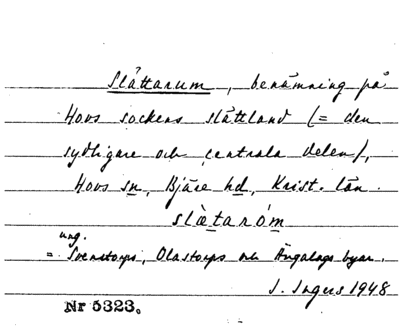 Slättarum, benämning på
Hovs sockens slättland (= den
sydligare och centrala delen),
Hovs sn, Bjäre hd, Krist. län.
slætaróm
ung.
= Svenstorps, Olastorps och Ängalags byar.
I. Ingers 1948
Nr 5323.